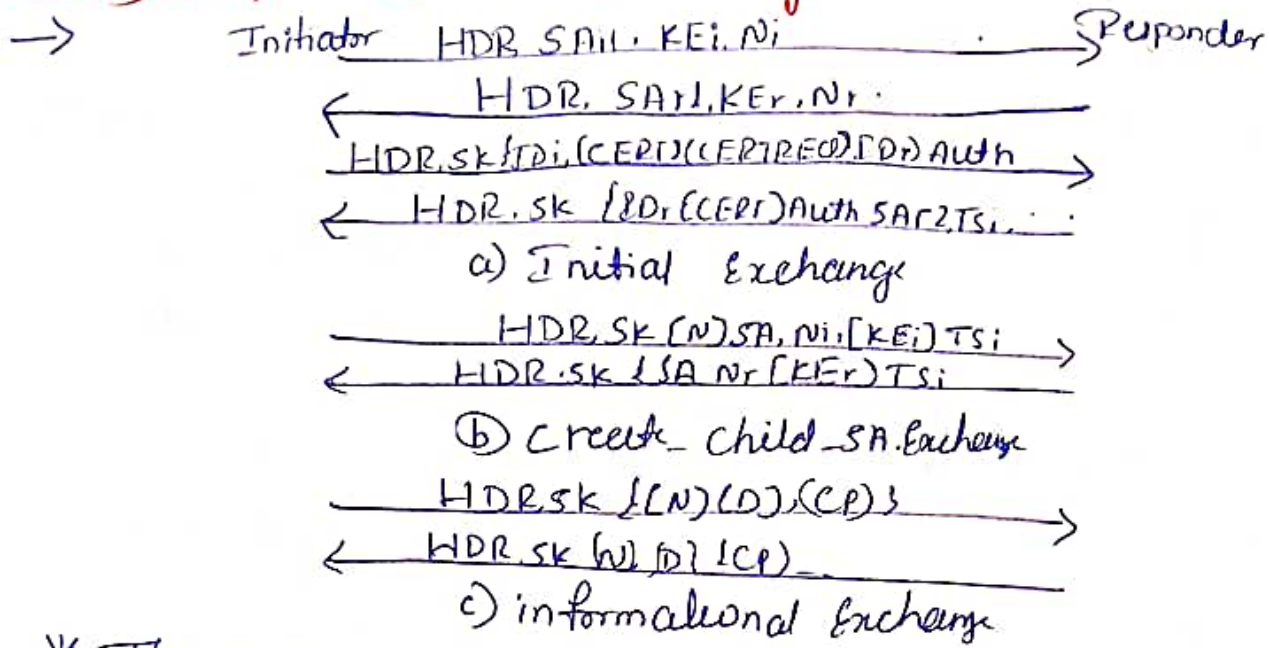 → Initiator HDR SAi1. KEi. Ni Responder
HDR. SAr1. KEr. Nr.
HDR.SK{IDi,[CERT][CERTREQ].[IDr) Auth
HDR. SK {IDr [CERT) Auth SAr2, TSi. . .
a) Initial Exchange
HDR, SK [N] SA, Ni, [KEi] TSi
HDR.SK {SA Nr [KEr) TSi
b) Create_ Child_SA.Exchange
HDR SK {[N] [D], (CP) }
HDR. SK [N] [D] {CP)
c) informational Exchange